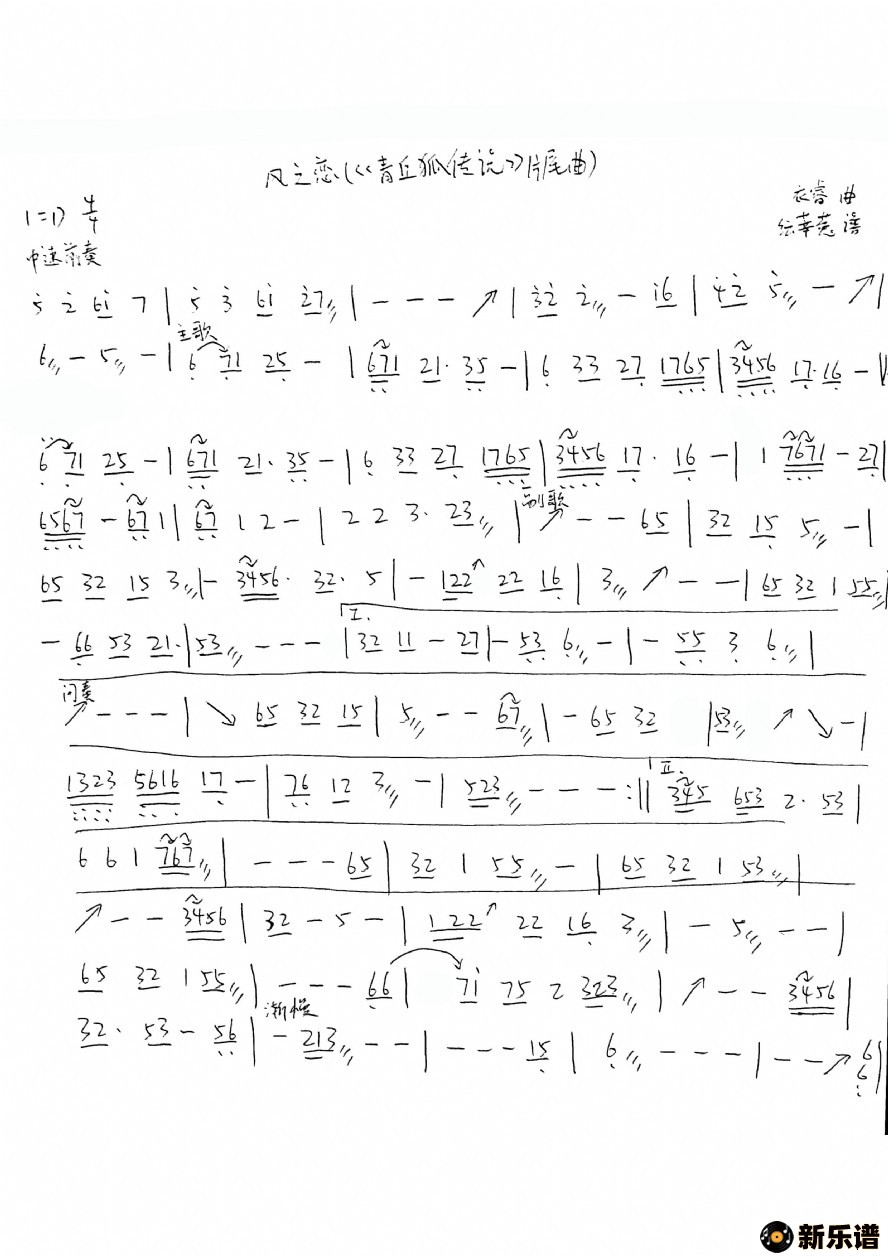 风之恋(《青丘狐传说》片尾曲)
1=D 4/4
衣睿 曲
谱
中速前奏
5 2 61 7 | 5 3 61 27 | - - - ↗ | 32 2 - 16 | 42 5 - ↗ |
6 - 5 - | 主歌 6 71 25 - | 671 21· 35 - | 6 33 27 1765 | 3456 17·16 - |
6 71 25 - | 671 21· 35 - | 6 33 27 1765 | 3456 17· 16 - | 1 7671 - 27 |
6567 - 67 1 | 67 1 2 - | 2 2 3· 23 | 副歌 ↗ - - 65 | 32 15 5 - |
65 32 15 3 | - 3456· 32· 5 | - 122 ↗ 22 16 | 3 ↗ - - | 65 32 1 55 |
- 66 53 21· | 53 - - - | I. 32 11 - 27 | - 53 6 - | - 55 3 6 |
间奏 ↗ - - - | ↘ 65 32 15 | 5 - - 67 | - 65 32 | 53 ↗ ↘ - |
1323 5616 17 - | 76 12 3 - | 523 - - - :|| II. 345 653 2· 53 |
6 6 1 767 | - - - 65 | 32 1 55 - | 65 32 1 53 |
↗ - - 3456 | 32 - 5 - | 122 ↗ 22 16 3 | - 5 - - |
65 32 1 55 | - - - 66 | 71 75 2 323 | ↗ - - 3456 |
32· 53 - 56 | 渐慢 - 213 - - | - - - 15 | 6 - - - | - - ↗ 6 6 |
新乐谱